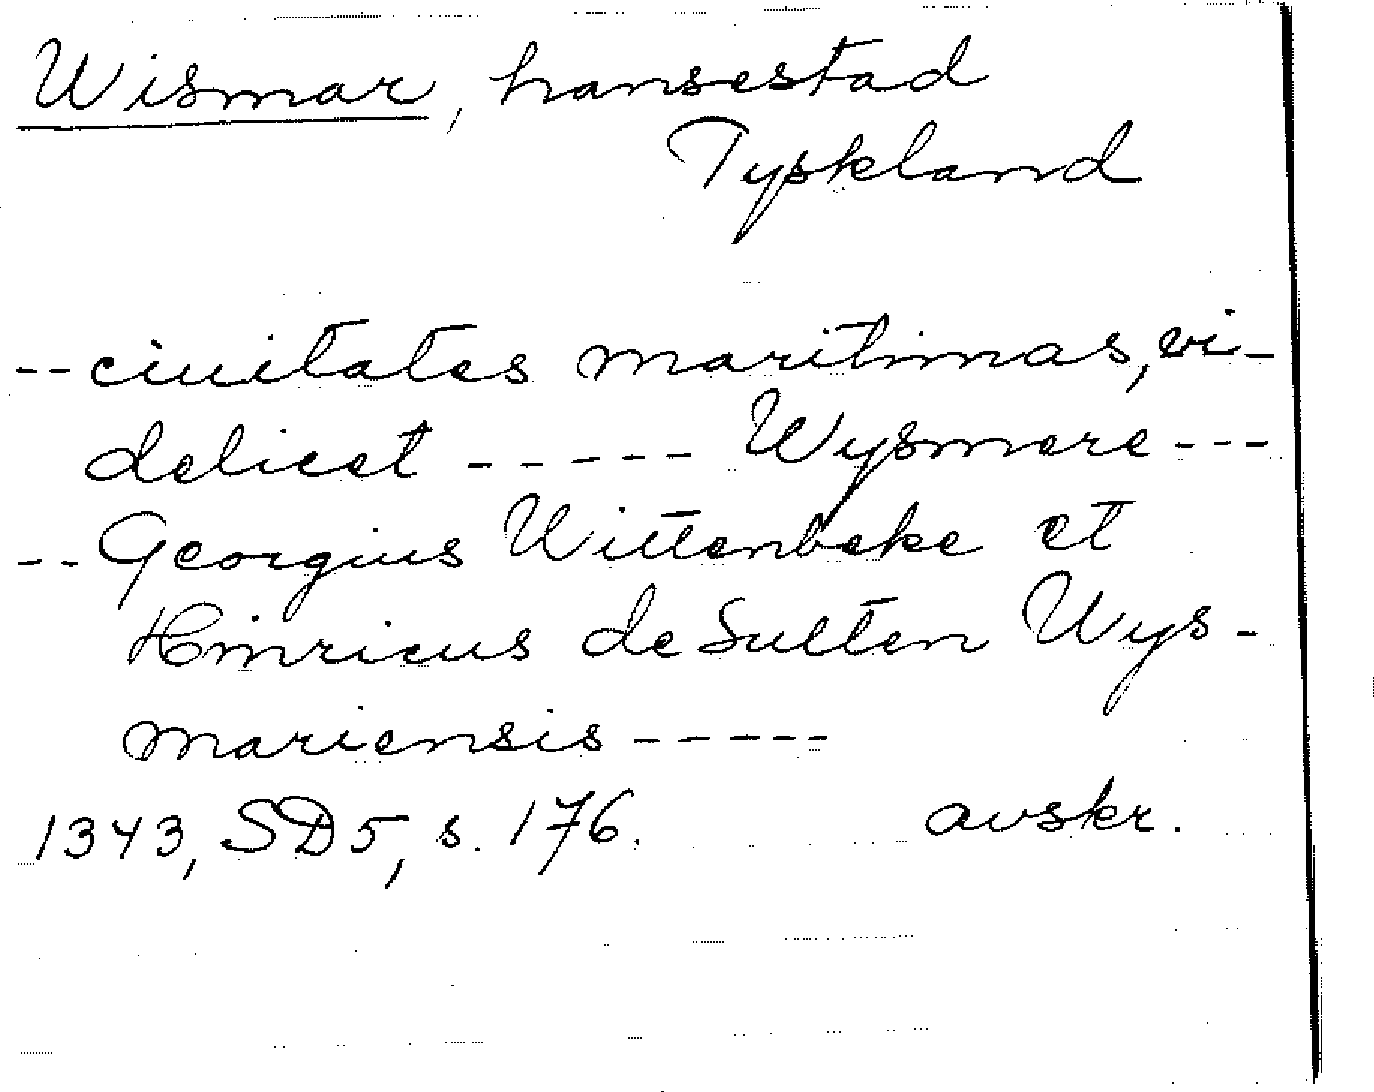 Wismar, hansestad
Tyskland
-- ciuitates maritimas, vi-
delicet ----- Wysmere ---
-- Georgius Wittenbeke et
Hinricus de Sulten Wys-
mariensis -----
1343, SD5, s. 176. avskr.